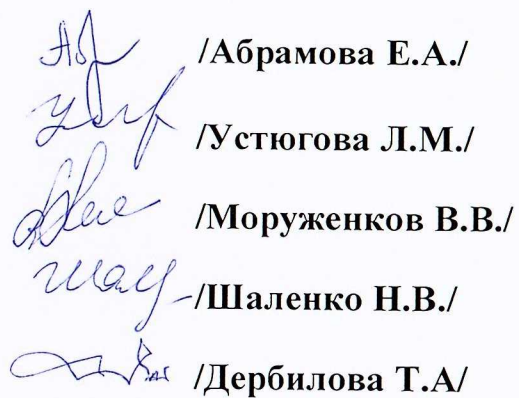 /Абрамова Е.А./
/Устюгова Л.М./
/Моруженков В.В./
/Шаленко Н.В./
/Дербилова Т.А/